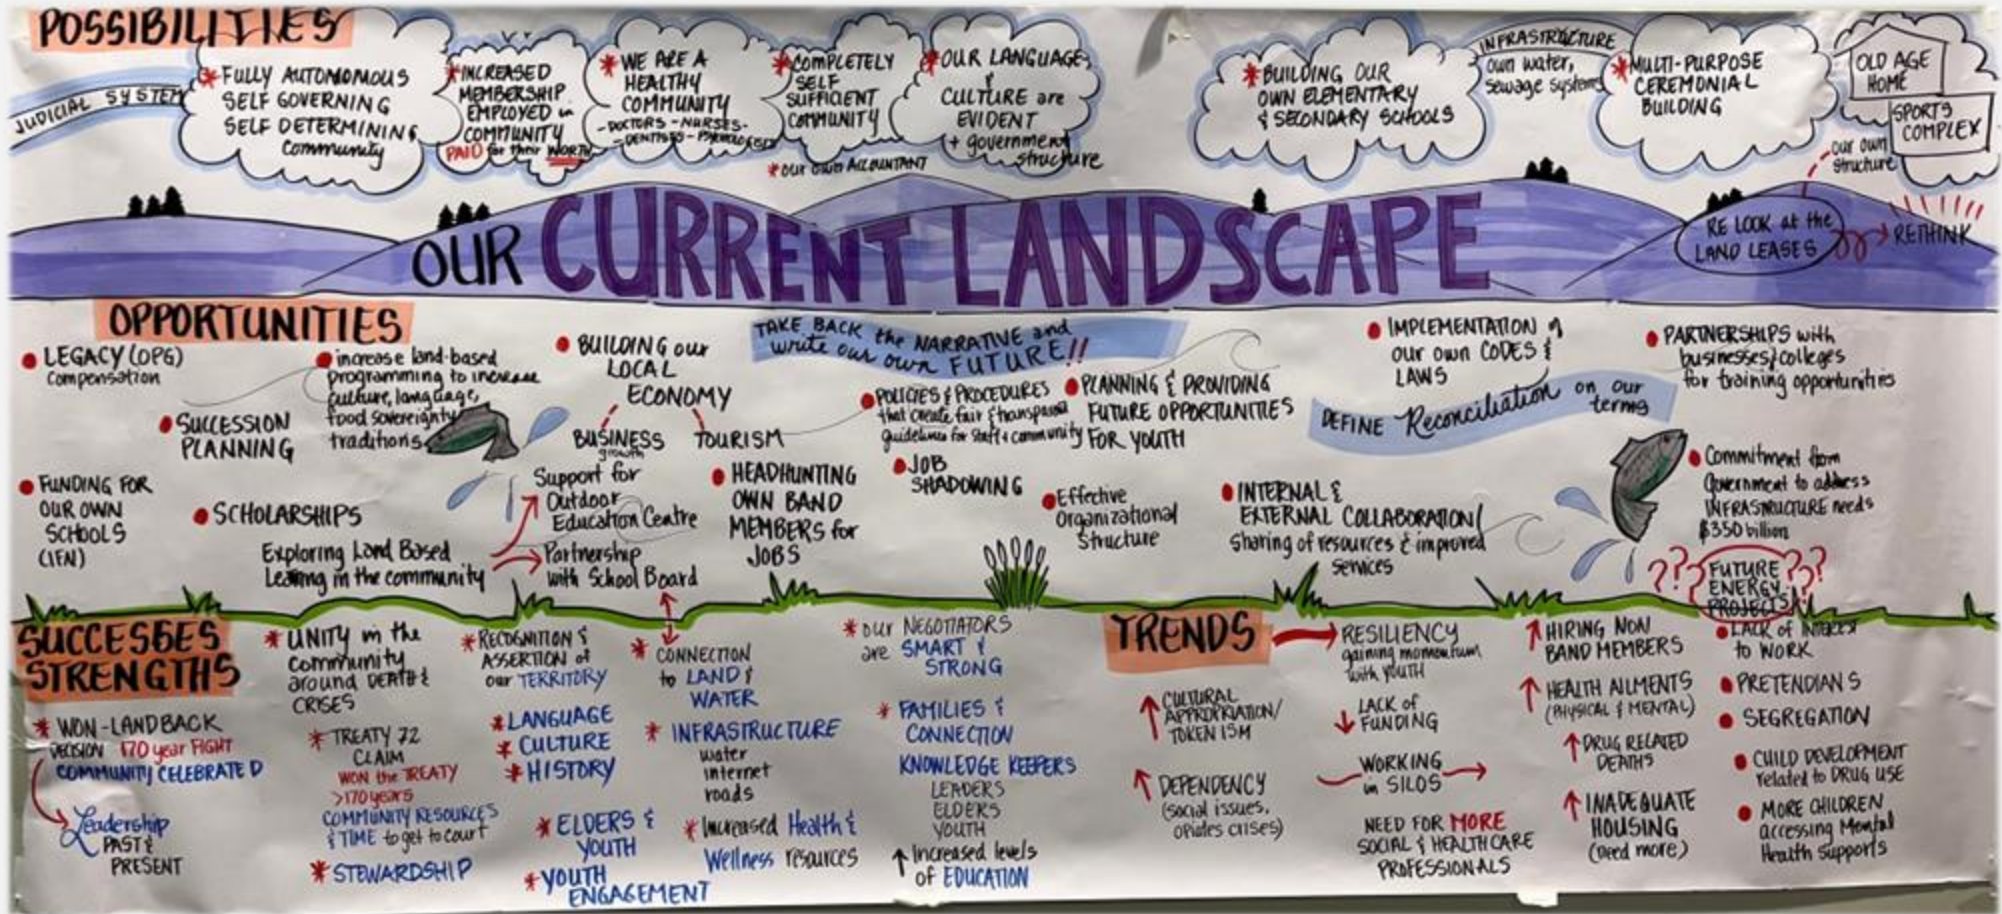 POSSIBILITIES
JUDICIAL SYSTEM
* FULLY AUTONOMOUS
SELF GOVERNING
SELF DETERMINING
Community
* INCREASED
MEMBERSHIP
EMPLOYED in
COMMUNITY
PAID for their WORTH
* WE ARE A
HEALTHY
COMMUNITY
- DOCTORS - NURSES -
- DENTISTS -
* COMPLETELY
SELF
SUFFICIENT
COMMUNITY
* OUR OWN ACCOUNTANT
* OUR LANGUAGE
&
CULTURE are
EVIDENT
+ government
structure
* BUILDING OUR
OWN ELEMENTARY
& SECONDARY SCHOOLS
INFRASTRUCTURE
own water,
sewage systems
* MULTI-PURPOSE
CEREMONIAL
BUILDING
OLD AGE
HOME
SPORTS
COMPLEX
our own
structure
OUR CURRENT LANDSCAPE
RE LOOK at the
LAND LEASES
RETHINK
OPPORTUNITIES
LEGACY (OPG)
Compensation
SUCCESSION
PLANNING
FUNDING FOR
OUR OWN
SCHOOLS
(IFN)
SCHOLARSHIPS
increase land-based
programming to increase
culture, language,
food sovereignty
traditions
Exploring Land Based
Learning in the community
Support for
Outdoor
Education Centre
Partnership
with School Board
BUILDING our
LOCAL
ECONOMY
BUSINESS
growth
TOURISM
TAKE BACK the NARRATIVE and
write our own FUTURE!!
HEADHUNTING
OWN BAND
MEMBERS for
JOBS
POLICIES & PROCEDURES
that create fair & transparent
guidelines for staff & community
JOB
SHADOWING
PLANNING & PROVIDING
FUTURE OPPORTUNITIES
FOR YOUTH
Effective
Organizational
Structure
IMPLEMENTATION of
our own CODES &
LAWS
DEFINE Reconciliation on our
terms
INTERNAL &
EXTERNAL COLLABORATION/
Sharing of resources & improved
services
PARTNERSHIPS with
businesses/colleges
for training opportunities
Commitment from
Government to address
INFRASTRUCTURE needs
$350 billion
??? FUTURE ???
ENERGY
PROJECTS
SUCCESSES
STRENGTHS
* WON-LANDBACK
DECISION 170 year FIGHT
COMMUNITY CELEBRATED
Leadership
PAST &
PRESENT
* UNITY in the
community
around DEATH &
CRISES
* TREATY 72
CLAIM
WON the TREATY
>170 years
COMMUNITY RESOURCES
& TIME to get to court
* STEWARDSHIP
* RECOGNITION &
ASSERTION of
our TERRITORY
* LANGUAGE
* CULTURE
* HISTORY
* ELDERS &
YOUTH
* YOUTH
ENGAGEMENT
* CONNECTION
to LAND &
WATER
* INFRASTRUCTURE
water
internet
roads
* Increased Health &
Wellness resources
* our NEGOTIATORS
are SMART &
STRONG
* FAMILIES &
CONNECTION
KNOWLEDGE KEEPERS
LEADERS
ELDERS
YOUTH
↑ Increased levels
of EDUCATION
TRENDS
↑ CULTURAL
APPROPRIATION/
TOKENISM
↑ DEPENDENCY
(social issues,
opiates crises)
RESILIENCY
gaining momentum
with YOUTH
↓ LACK of
FUNDING
WORKING
in SILOS
NEED FOR MORE
SOCIAL & HEALTHCARE
PROFESSIONALS
↑ HIRING NON
BAND MEMBERS
↑ HEALTH AILMENTS
(PHYSICAL & MENTAL)
↑ DRUG RELATED
DEATHS
↑ INADEQUATE
HOUSING
(need more)
LACK of INTEREST
to WORK
PRETENDIANS
SEGREGATION
CHILD DEVELOPMENT
related to DRUG USE
MORE CHILDREN
accessing Mental
Health Supports